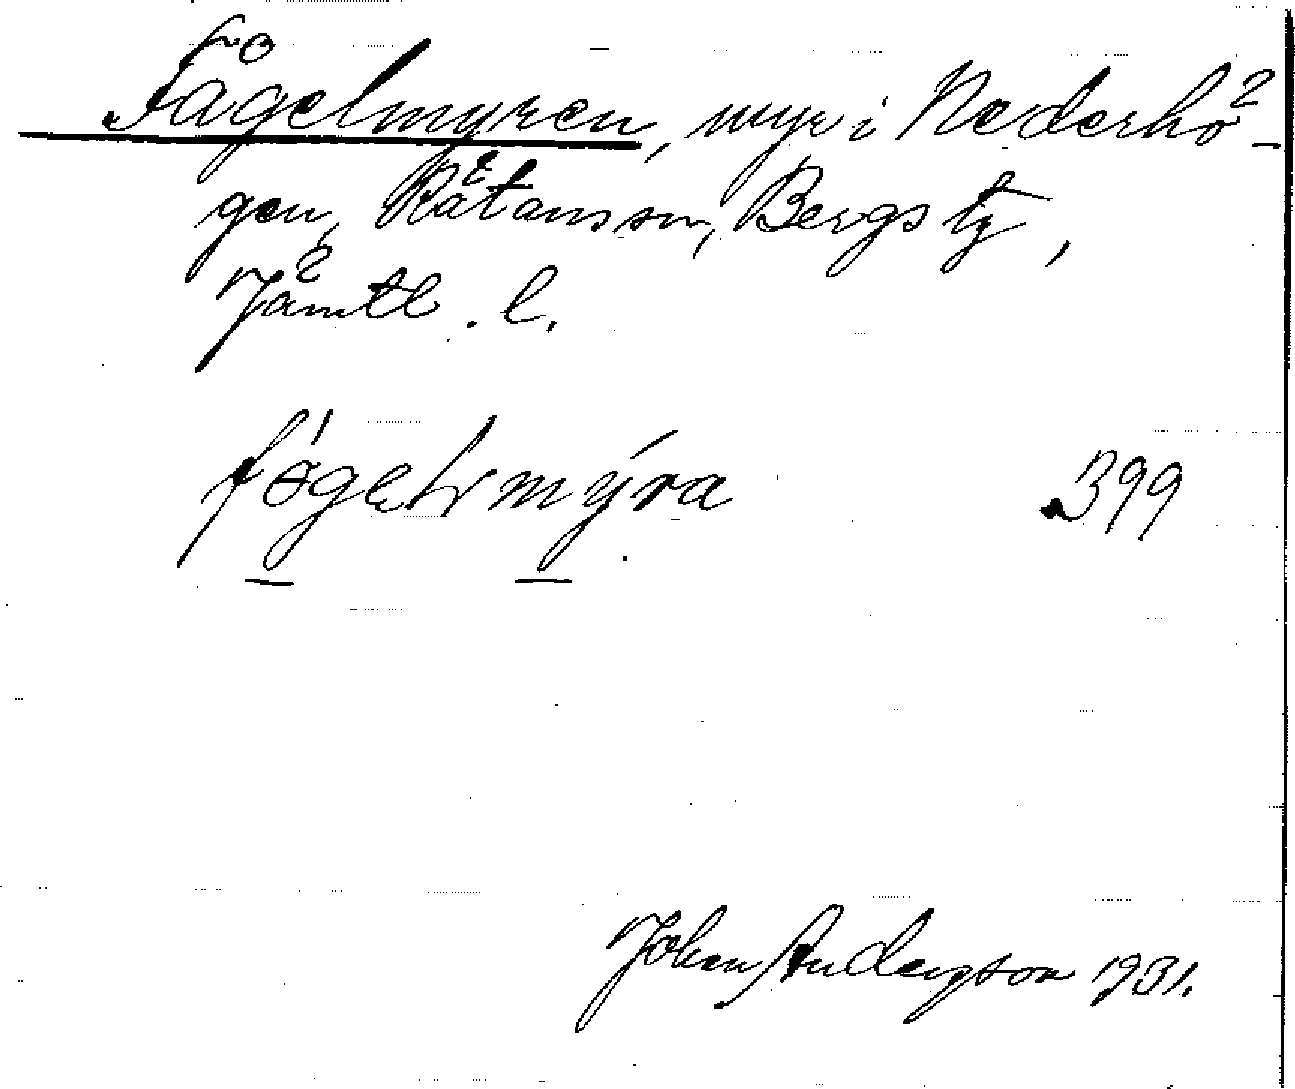 Fågelmyren, myr i Nederhö-
gen, Rätans sn, Bergs tg,
Jämtl. l.
399
Johan Anderzson 1931.